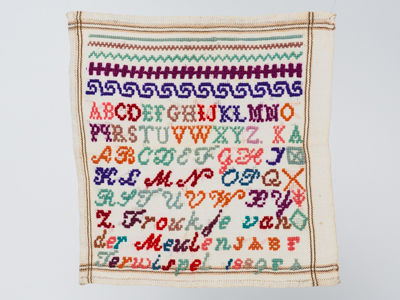 ABCDEFGHIJKLMNO
PQRSTUVWXYZ K A
ABCDEFGHI
KLMNOPQ
RSTUVWXY
Z. Froukje van
der Meulen J A B F
Terwispel